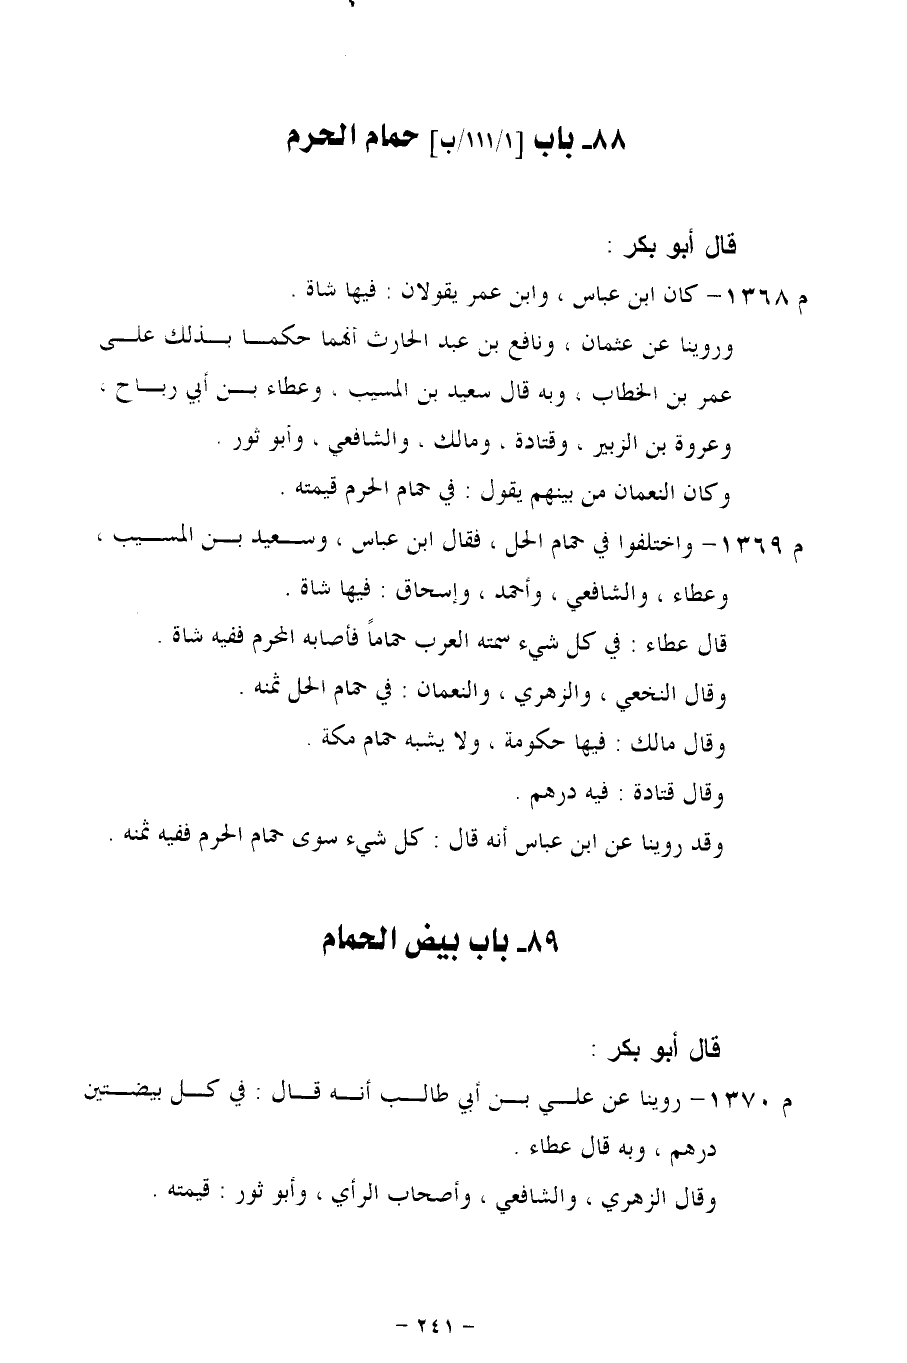 ٨٨ـ باب [١/١١١/ب] حمام الحرم
قال أبو بكر :
م ١٣٦٨– كان ابن عباس ، وابن عمر يقولان : فيها شاة .
وروينا عن عثمان ، ونافع بن عبد الحارث أنهما حكمـــا بـــذلك علـــى
عمر بن الخطاب ، وبه قال سعيد بن المسيب ، وعطاء بـــن أبي ربـــاح ،
وعروة بن الزبير ، وقتادة ، ومالك ، والشافعي ، وأبو ثور .
وكان النعمان من بينهم يقول : في حمام الحرم قيمته .
م ١٣٦٩– واختلفوا في حمام الحل ، فقال ابن عباس ، وســـعيد بـــن المســـيب ،
وعطاء ، والشافعي ، وأحمد ، وإسحاق : فيها شاة .
قال عطاء : في كل شيء سمته العرب حماماً فأصابه المحرم ففيه شاة .
وقال النخعي ، والزهري ، والنعمان : في حمام الحل ثمنه .
وقال مالك : فيها حكومة ، ولا يشبه حمام مكة .
وقال قتادة : فيه درهم .
وقد روينا عن ابن عباس أنه قال : كل شيء سوى حمام الحرم ففيه ثمنه .
٨٩ـ باب بيض الحمام
قال أبو بكر :
م ١٣٧٠– روينا عن علـــي بـــن أبي طالـــب أنـــه قـــال : في كـــل بيضـــتين
درهم ، وبه قال عطاء .
وقال الزهري ، والشافعي ، وأصحاب الرأي ، وأبو ثور : قيمته .
– ٢٤١ –